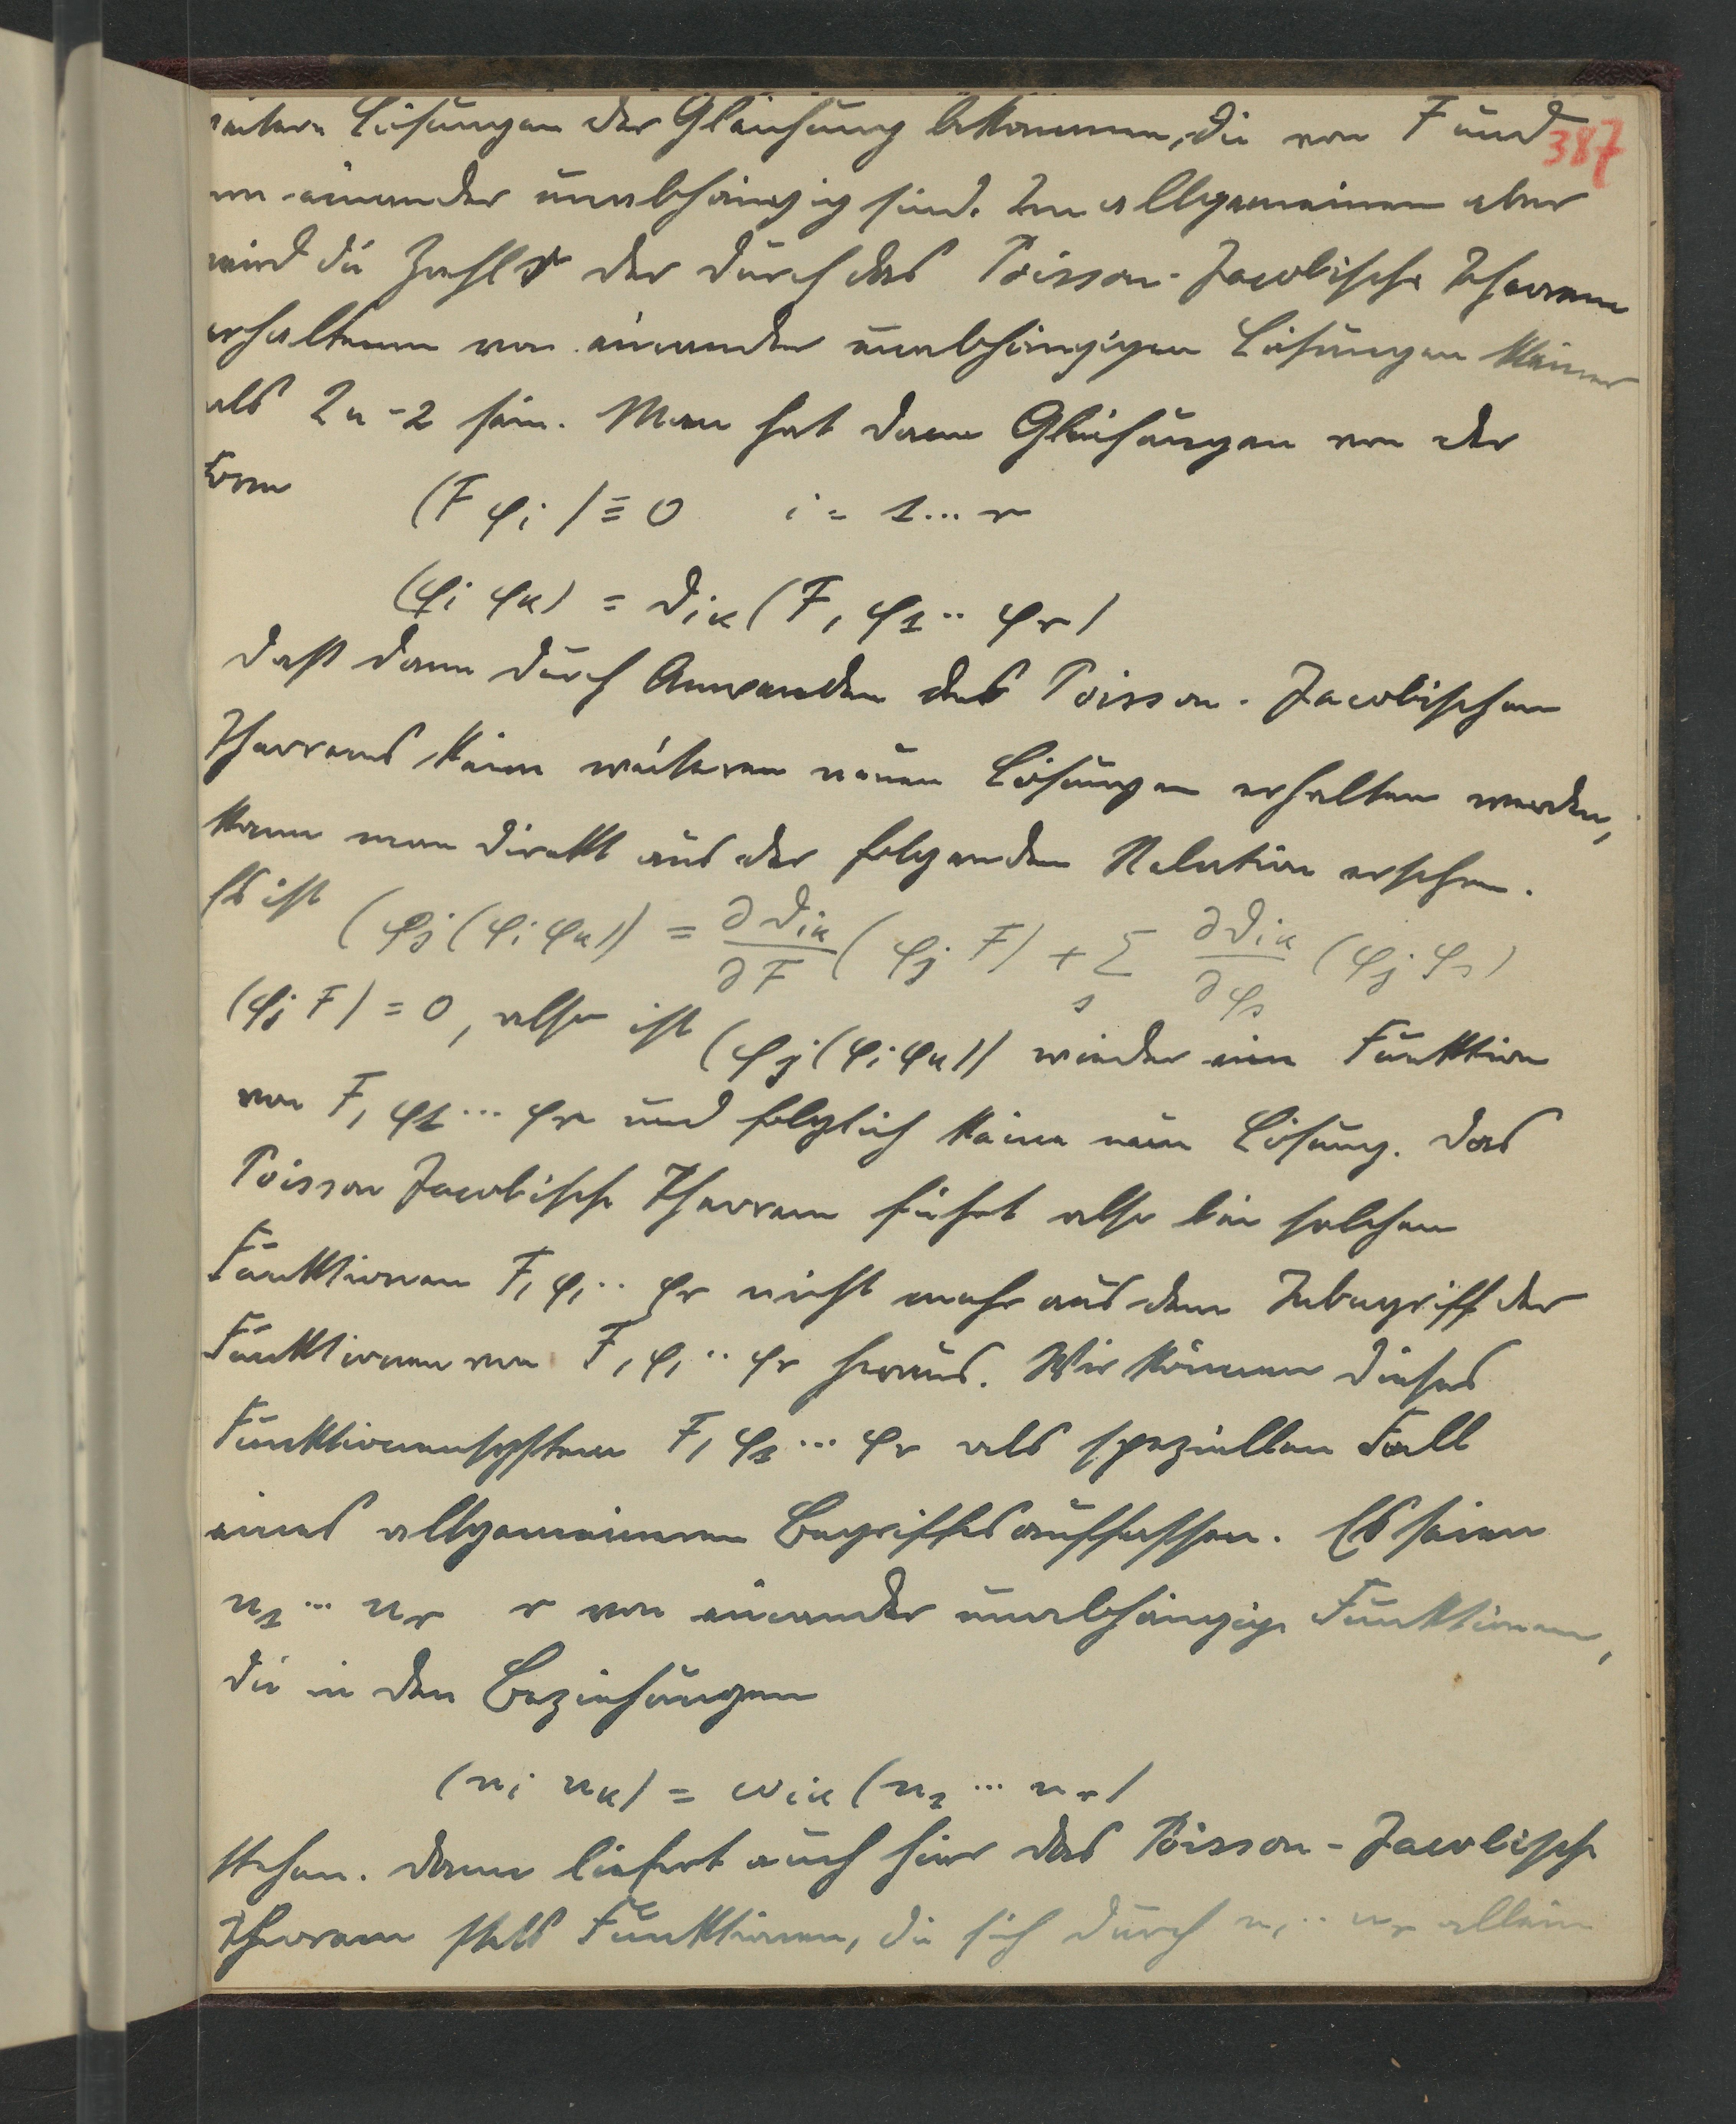 weitere Lösungen der Gleichung bekommen, die von F und
387
von einander unabhängig sind. Im allgemeinen aber
wird die Zahl r der durch das Poisson-Jacobische Theorem
erhaltenen von einander unabhängigen Lösungen kleiner
als 2n-2 sein. Man hat dann Gleichungen von der
Form
(F φi) ≡ 0 i = 1...r
(φi φk) = ϑik (F, φ1.. φr)
Daß dann durch Anwenden des Poisson-Jacobischen
Theorems keine weiteren neuen Lösungen erhalten werden,
kann man direkt aus der folgenden Relation ersehen.
Es ist (φj (φi φk)) = ∂ϑik/∂F (φj F) + Σs ∂ϑik/∂φs (φj φs)
(φj F) = 0, also ist (φj (φi φk)) wieder eine Funktion
von F, φ1... φr und folglich keine neue Lösung. Das
Poisson Jacobische Theorem führt also bei solchen
Funktionen F, φ1.. φr nicht mehr aus dem Inbegriff der
Funktionen von F, φ1.. φr heraus. Wir können dieses
Funktionensystem F, φ1... φr als speziellen Fall
eines allgemeineren Begriffes auffassen. Es seien
u1... ur r von einander unabhängige Funktionen,
die in den Beziehungen
(ui uk) = ωik (u1 ... ur)
stehen. Dann liefert auch hier das Poisson-Jacobische
Theorem stets Funktionen, die sich durch u1.. ur allein